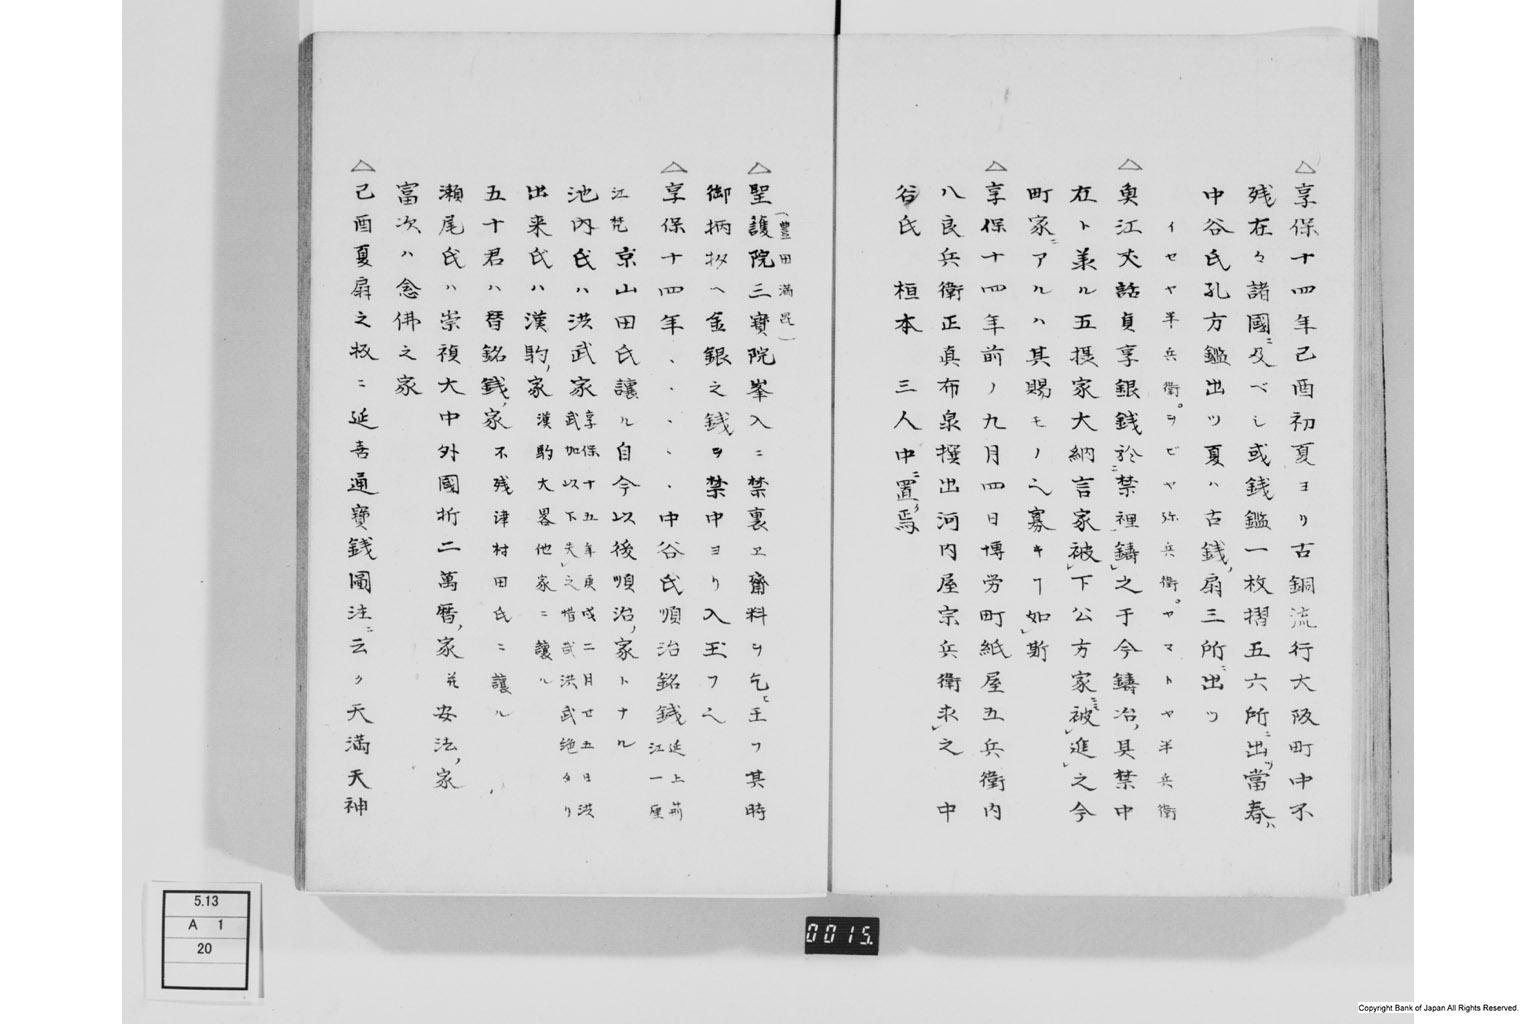 △享保十四年己酉初夏ヨリ古銅流行大阪町中不
残在々諸國ニ及ベシ或銭鑑一枚摺五六所ニ出ツ當春ハ
中谷氏孔方鑑出ツ夏ハ古銭ノ扇三所ニ出ツ
イセヤ半兵衛。ヲビヤ弥兵衛。ヤマトヤ半兵衛
△奥江丈話貞享銀銭於ニ禁裡鋳之于今鋳冶ノ具禁中
在ト羕ル五摂家大納言家被下公方家ニモ被進之今
町家ニアルハ其賜モノヘ寡キヿ如斯
△享保十四年前ノ九月四日博労町紙屋五兵衛内
八良兵衛正真布泉撰出河内屋宗兵衛求之 中
谷氏 桓本 三人中ニ置ク焉
(豊田満邑)
△聖護院三寶院峯入ニ禁裏ヱ齋料ヲ乞ヒ玉フ其時
御柄杓ヘ金銀之銭ヲ禁中ヨリ入玉フヘ
△享保十四年、、、、中谷氏順治銘銭 延上荊 江一厘
江梵京山田氏讓ル自今以後順治ノ家トナル
池内氏ハ洪武家 享保十五年庚戌二月廿五日洪 武加以下失之惜哉洪武絶タリ
出来氏ハ漢駒ノ家 漢駒大畧他家ニ讓ル
五十君ハ替銘銭ノ家 不残津村田氏ニ讓ル
瀬尾氏ハ崇禎大中外國折二萬暦ノ家并安法ノ家
富次ハ念佛之家
△己酉夏扇之板ニ延喜通寶銭圖注ニ云ク天満天神
5.13
A 1
20
0015.
Copyright Bank of Japan All Rights Reserved.